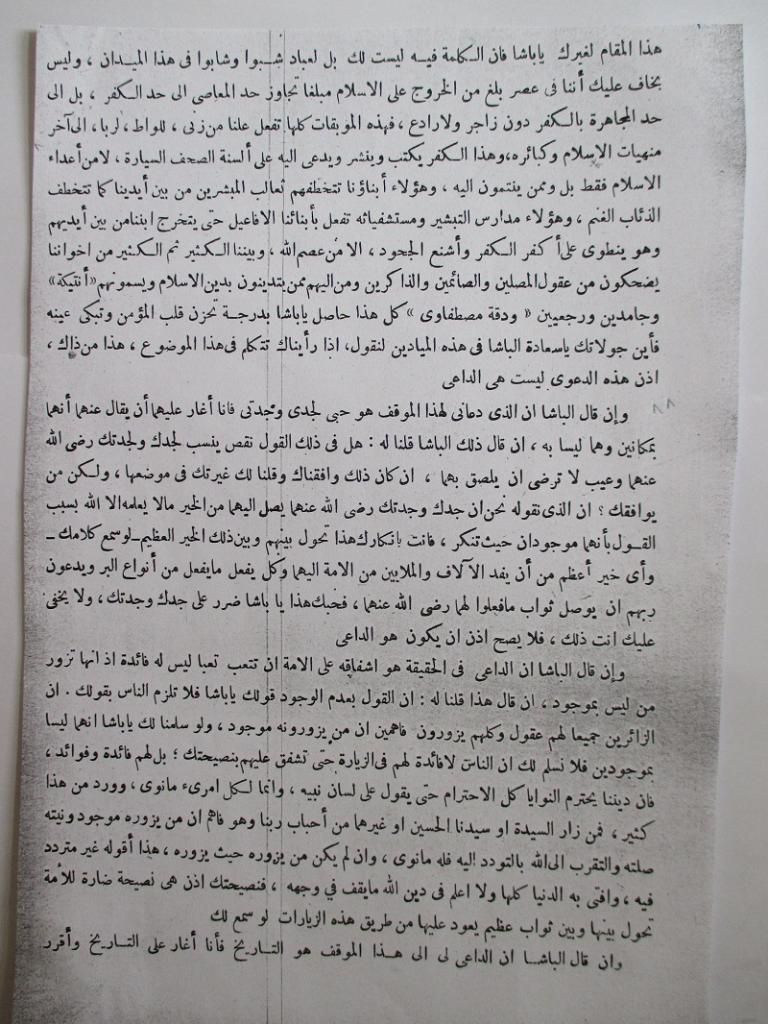 هذا المقام لغيرك ياباشا فان الكلمة فيه ليست لك بل لعباد شبوا وشابوا فى هذا الميدان ، وليس
يخاف عليك أننا فى عصر بلغ من الخروج على الاسلام مبلغا تجاوز حد المعاصى الى حد الكفر ، بل الى
حد المجاهرة بالكفر دون زاجر ولا رادع ، فهذه الموبقات كلها تفعل علنا من زنى ، للواط ، لربا ، الى آخر
منهيات الإسلام وكبائره ، وهذا الكفر يكتب وينشر ويدعى اليه على ألسنة الصحف السيارة ، لا من أعداء
الاسلام فقط بل وممن ينتمون اليه ، وهؤلاء أبناؤنا تتخطفهم ثعالب المبشرين من بين أيدينا كما تتخطف
الذئاب الغنم ، وهؤلاء مدارس التبشير ومستشفياته تفعل بأبنائنا الافاعيل حتى يتخرج ابننا من بين أيديهم
وهو ينطوى على أكفر الكفر وأشنع الجحود ، الا من عصم الله ، وبيننا الكثير ثم الكثير من اخواننا
يضحكون من عقول المصلين والصائمين والذاكرين ومن اليهم ممن يتدينون بدين الاسلام ويسمونهم «أنتيكة»
وجامدين ورجعيين « ودقة مصطفاوى » كل هذا حاصل ياباشا بدرجة تحزن قلب المؤمن وتبكى عينه
فأين جولاتك ياسعادة الباشا فى هذه الميادين لنقول ، اذا رأيناك تتكلم فى هذا الموضوع ، هذا من ذاك ،
اذن هذه الدعوى ليست هى الداعى
وإن قال الباشا ان الذى دعانى لهذا الموقف هو حبى لجدى وجدتى فانا أغار عليهما أن يقال عنهما أنهما
بمكانين وهما ليسا به ، ان قال ذلك الباشا قلنا له : هل فى ذلك القول نقص ينسب لجدك ولجدتك رضى الله
عنهما وعيب لا ترضى ان يلصق بهما ، ان كان ذلك وافقناك وقلنا لك غيرتك فى موضعها ، ولكن من
يوافقك ؟ ان الذى نقوله نحن ان جدك وجدتك رضى الله عنهما يصل اليهما من الخير مالا يعلمه الا الله بسبب
القول بأنهما موجودان حيث تنكر ، فانت بانكارك هذا تحول بينهم وبين ذلك الخير العظيم ــ لو سمع كلامك ــ
وأى خير أعظم من أن يفد الآلاف والملايين من الامة اليهما وكل يفعل مايفعل من أنواع البر ويدعون
ربهم ان يوصل ثواب مافعلوا لهما رضى الله عنهما ، فحبك هذا يا باشا ضرر على جدك وجدتك ، ولا يخفى
عليك انت ذلك ، فلا يصح اذن ان يكون هو الداعى
وإن قال الباشا ان الداعى فى الحقيقة هو اشفاقه على الامة ان تتعب تعبا ليس له فائدة اذ انها تزور
من ليس بموجود ، ان قال هذا قلنا له : ان القول بعدم الوجود قولك ياباشا فلا تلزم الناس بقولك . ان
الزائرين جميعا لهم عقول وكلهم يزورون فاهمين ان من يزورونه موجود ، ولو سلمنا لك ياباشا انهما ليسا
بموجودين فلا نسلم لك ان الناس لافائدة لهم فى الزيارة حتى تشفق عليهم بنصيحتك ؛ بل لهم فائدة وفوائد ،
فان ديننا يحترم النوايا كل الاحترام حتى يقول على لسان نبيه ، وانما لكل امرىء مانوى ، وورد من هذا
كثير ، فمن زار السيدة او سيدنا الحسين او غيرهما من أحباب ربنا وهو فاهم ان من يزوره موجود ونيته
صلته والتقرب الى الله بالتودد اليه فله مانوى ، وان لم يكن من يزوره حيث يزوره ، هذا أقوله غير متردد
فيه ، وافتى به الدنيا كلها ولا اعلم فى دين الله مايقف في وجهه ، فنصيحتك اذن هى نصيحة ضارة للأمة
تحول بينها وبين ثواب عظيم يعود عليها من طريق هذه الزيارات لو سمع لك
وان قال الباشا ان الداعى لى الى هذا الموقف هو التاريخ فأنا أغار على التاريخ وأقرر